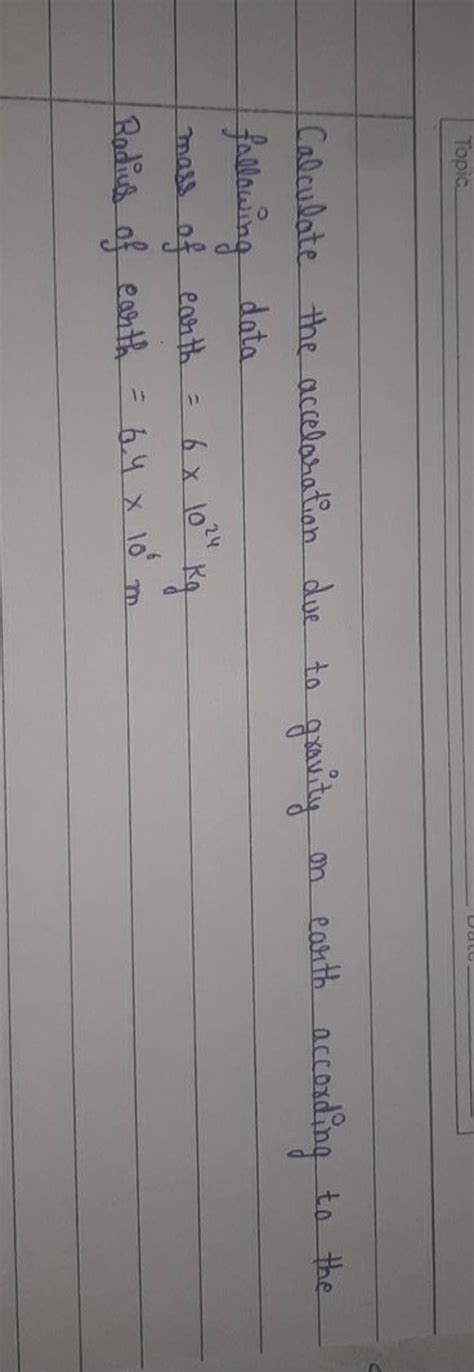 Topic
Date
Calculate the accelaration due to gravity on earth according to the
following data
mass of earth = 6 × 10²⁴ kg
Radius of earth = 6.4 × 10⁶ m